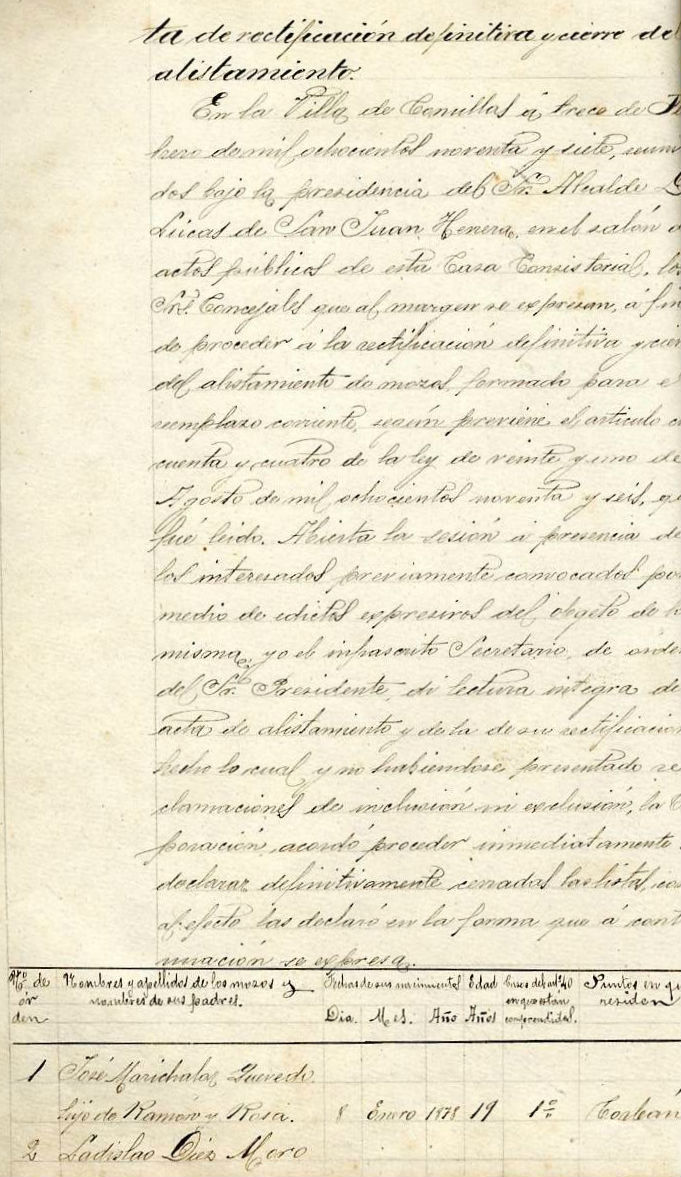 ta de rectificación definitiva y cierre del
alistamiento.
En la Villa de Comillas á trece de Fe
brero de mil ochocientos noventa y siete, reuni
dos bajo la presidencia del Sr. Alcalde D
Lucas de San Juan Herrera, en el salón d
actos públicos de esta Casa Consistorial, los
Sres. Concejales que al margen se expresan, á fin
de proceder á la rectificación definitiva y cier
del alistamiento de mozos formado para el
reemplazo corriente, según previene el articulo cin
cuenta y cuatro de la ley de veinte y uno de
Agosto de mil ochocientos noventa y seis, que
fué leido. Abierta la sesión á presencia de
los interesados previamente convocados por
medio de edictos expresivos del objeto de la
misma, yo el infrascrito Secretario, de orden
del Sr. Presidente, dí lectura integra del
acta de alistamiento y de la de su rectificacion
hecho lo cual y no habiendose presentado re
clamaciones de inclusión ni exclusión, la C
poración acordó proceder inmediatamente
declarar definitivamente cerradas las listas, co
al efecto las declaró en la forma que á conti
nuación se expresa.
Nº de órden Nombres y apellidos de los mozos y nombres de sus padres. Fechas de sus nacimientos Edad Casos del artº 40 en que están comprendidos. Puntos en qu residen
Dia. Mes. Año Años
1 José Marichalar Quevedo
hijo de Ramón y Rosa. 8 Enero 1878 19 1º
2 Ladislao Diez Moro